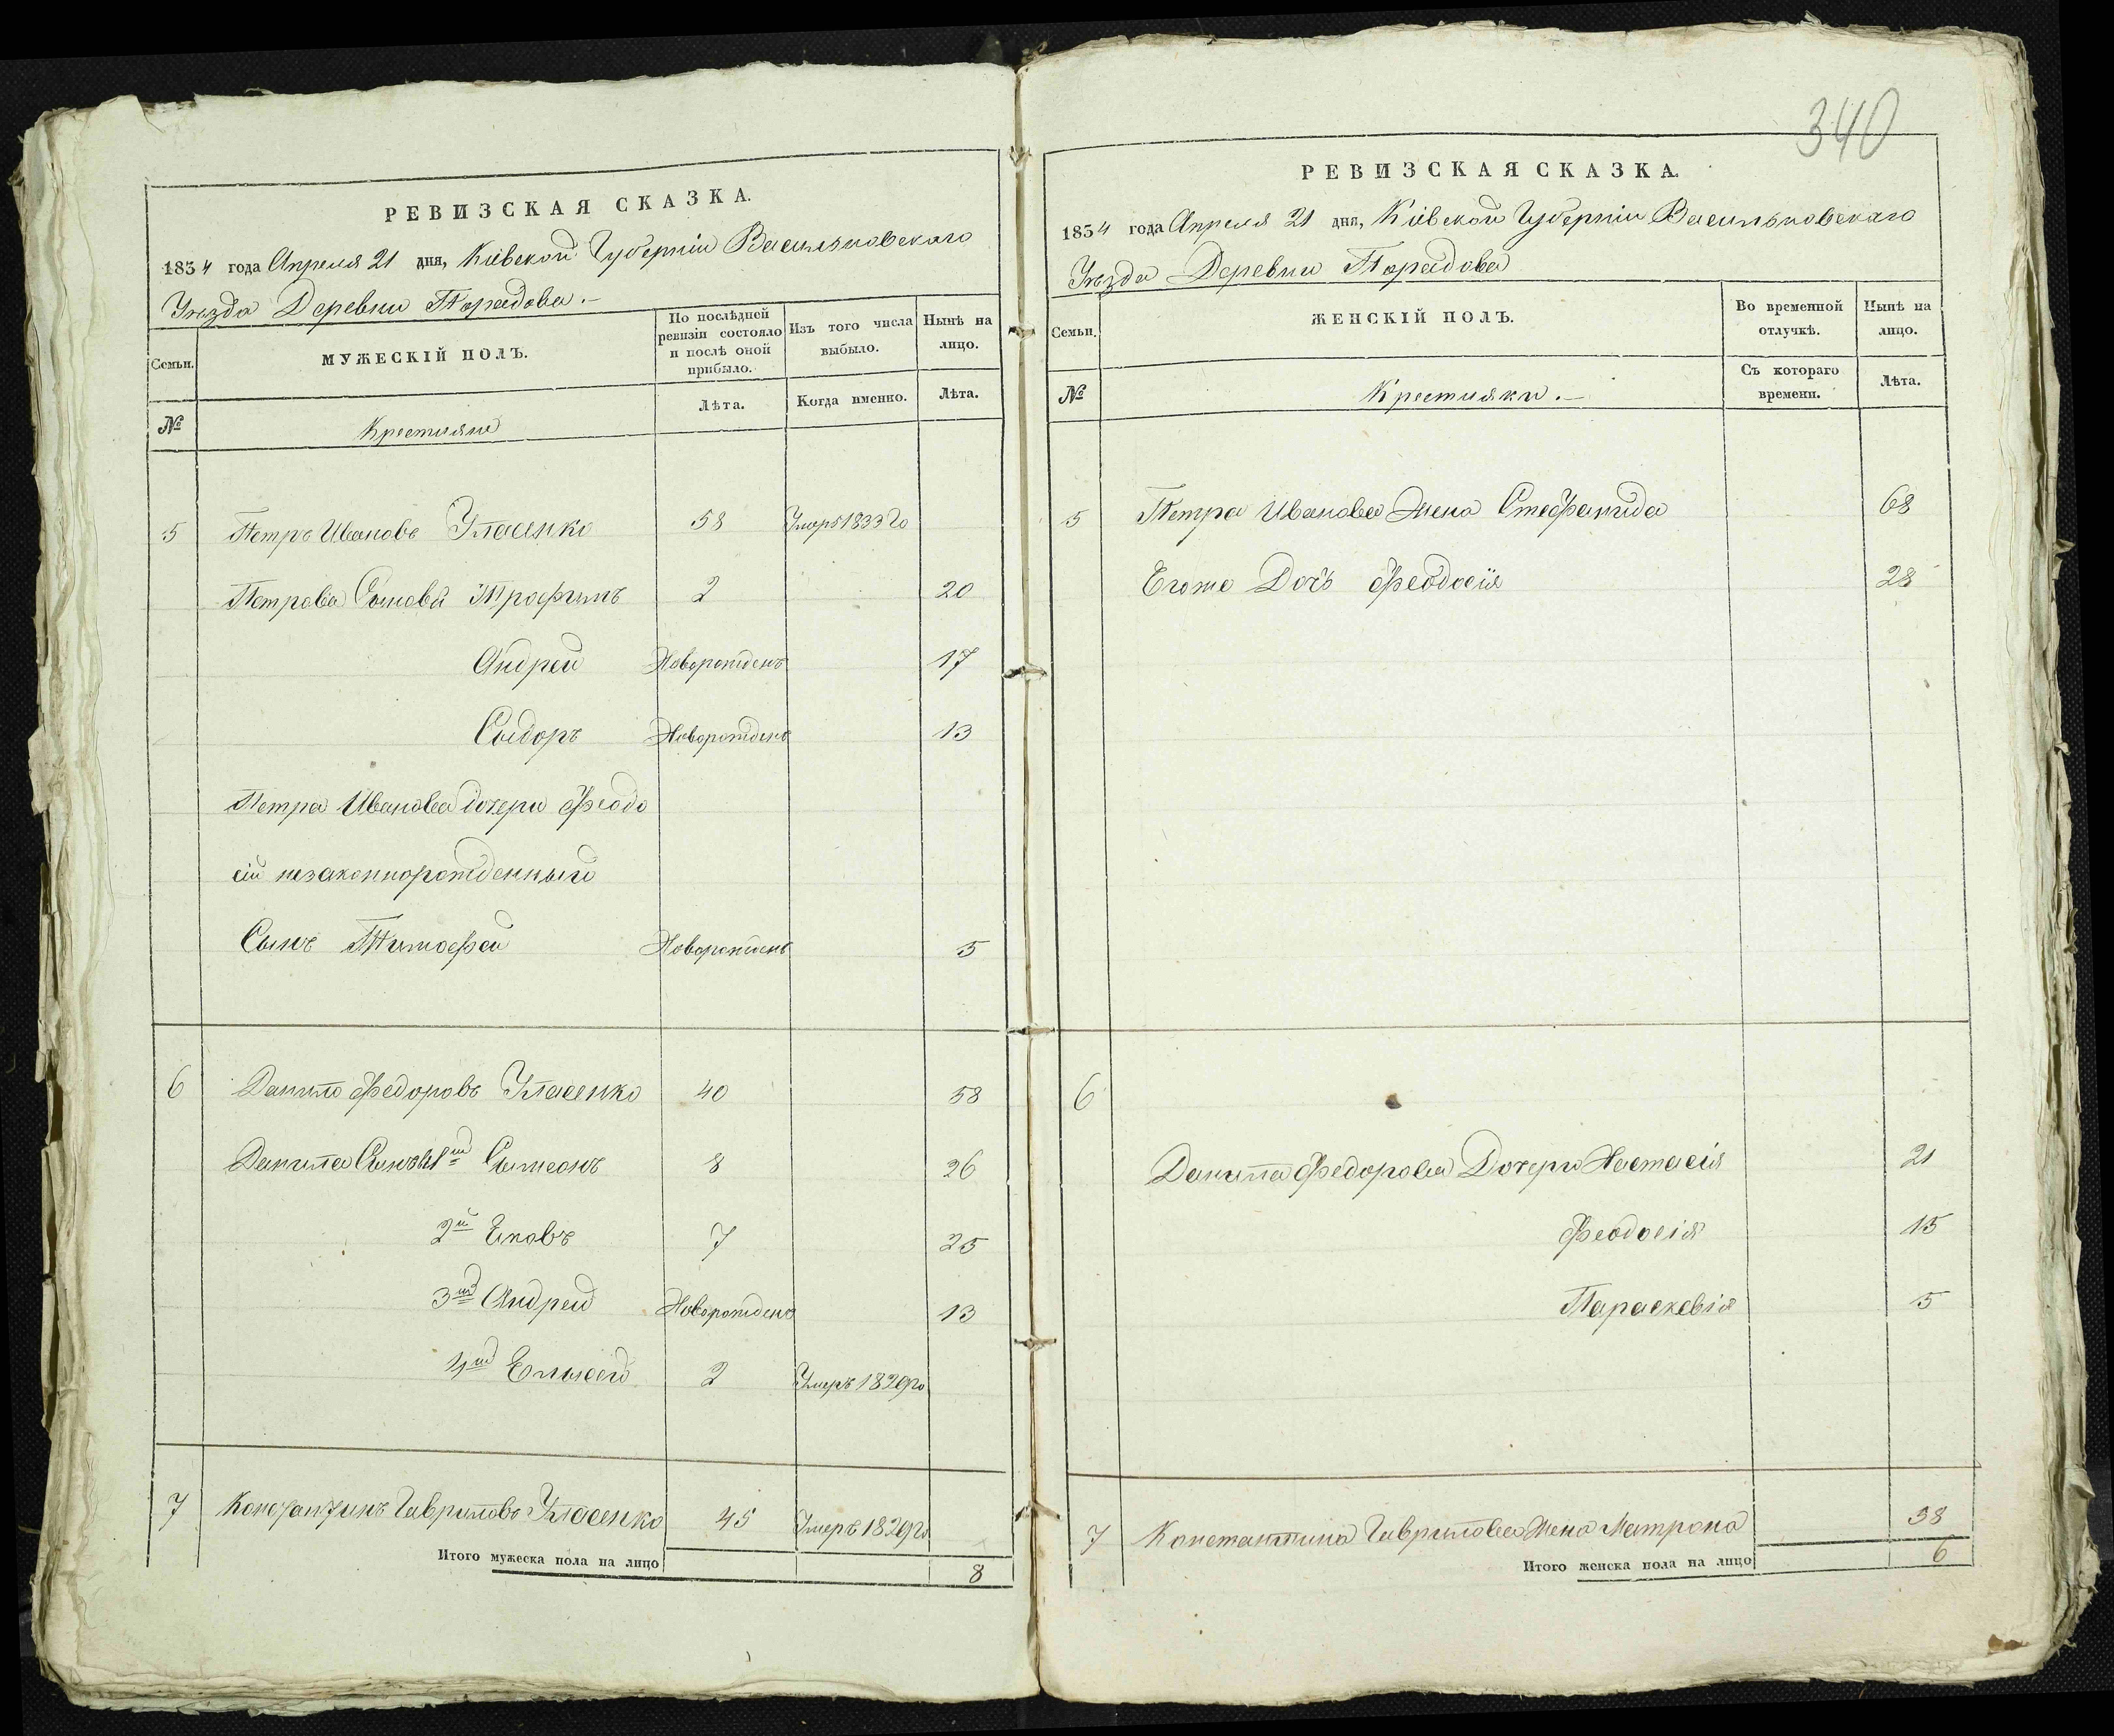 340
РЕВИЗСКАЯ СКАЗКА.
1834 года Апреля 21 дня, Кіевской Губерніи Васильковскаго
Уезда Деревни Порадова.
Семьи. МУЖЕСКІЙ ПОЛЪ. По послѣдней ревизіи состояло и послѣ оной прибыло. Изъ того числа выбыло. Нынѣ на лицо.
№ Крестияне Лѣта. Когда именно. Лѣта.
5 Петръ Ивановъ Уласенко 58 Умеръ 1833 Го
Петрова Сыновя Трофимъ 2 20
Андрей Новорожденъ 17
Сыдоръ Новорожденъ 13
Петра Иванова дочери Феодо
сіи незаконнорожденный
Сынъ Тимофей Новорожденъ 5
6 Данило Федоровъ Уласенко 40 58
Данила Сыновя 1й Сымеонъ 8 26
2й Яковъ 7 25
3й Андрей Новорожденъ 13
4й Елисей 2 Умеръ 1820го
7 Константинъ Гавриловъ Уласенко 45 Умеръ 1820го
Итого мужеска пола на лицо 8
РЕВИЗСКАЯ СКАЗКА.
1834 года Апреля 21 дня, Кіевской Губерніи Васильковскаго
Уезда Деревни Порадова
Семьи. ЖЕНСКІЙ ПОЛЪ. Во временной отлучкѣ. Нынѣ на лицо.
№ Крестиянки. Съ котораго времени. Лѣта.
5 Петра Иванова Жена Стефанида 68
Егоже Дочь Феодосія 28
6
Данила Федорова Дочери Настасія 21
Феодосія 15
Параскевія 5
7 Константина Гаврилова Жена Матрона 38
Итого женска пола на лицо 6